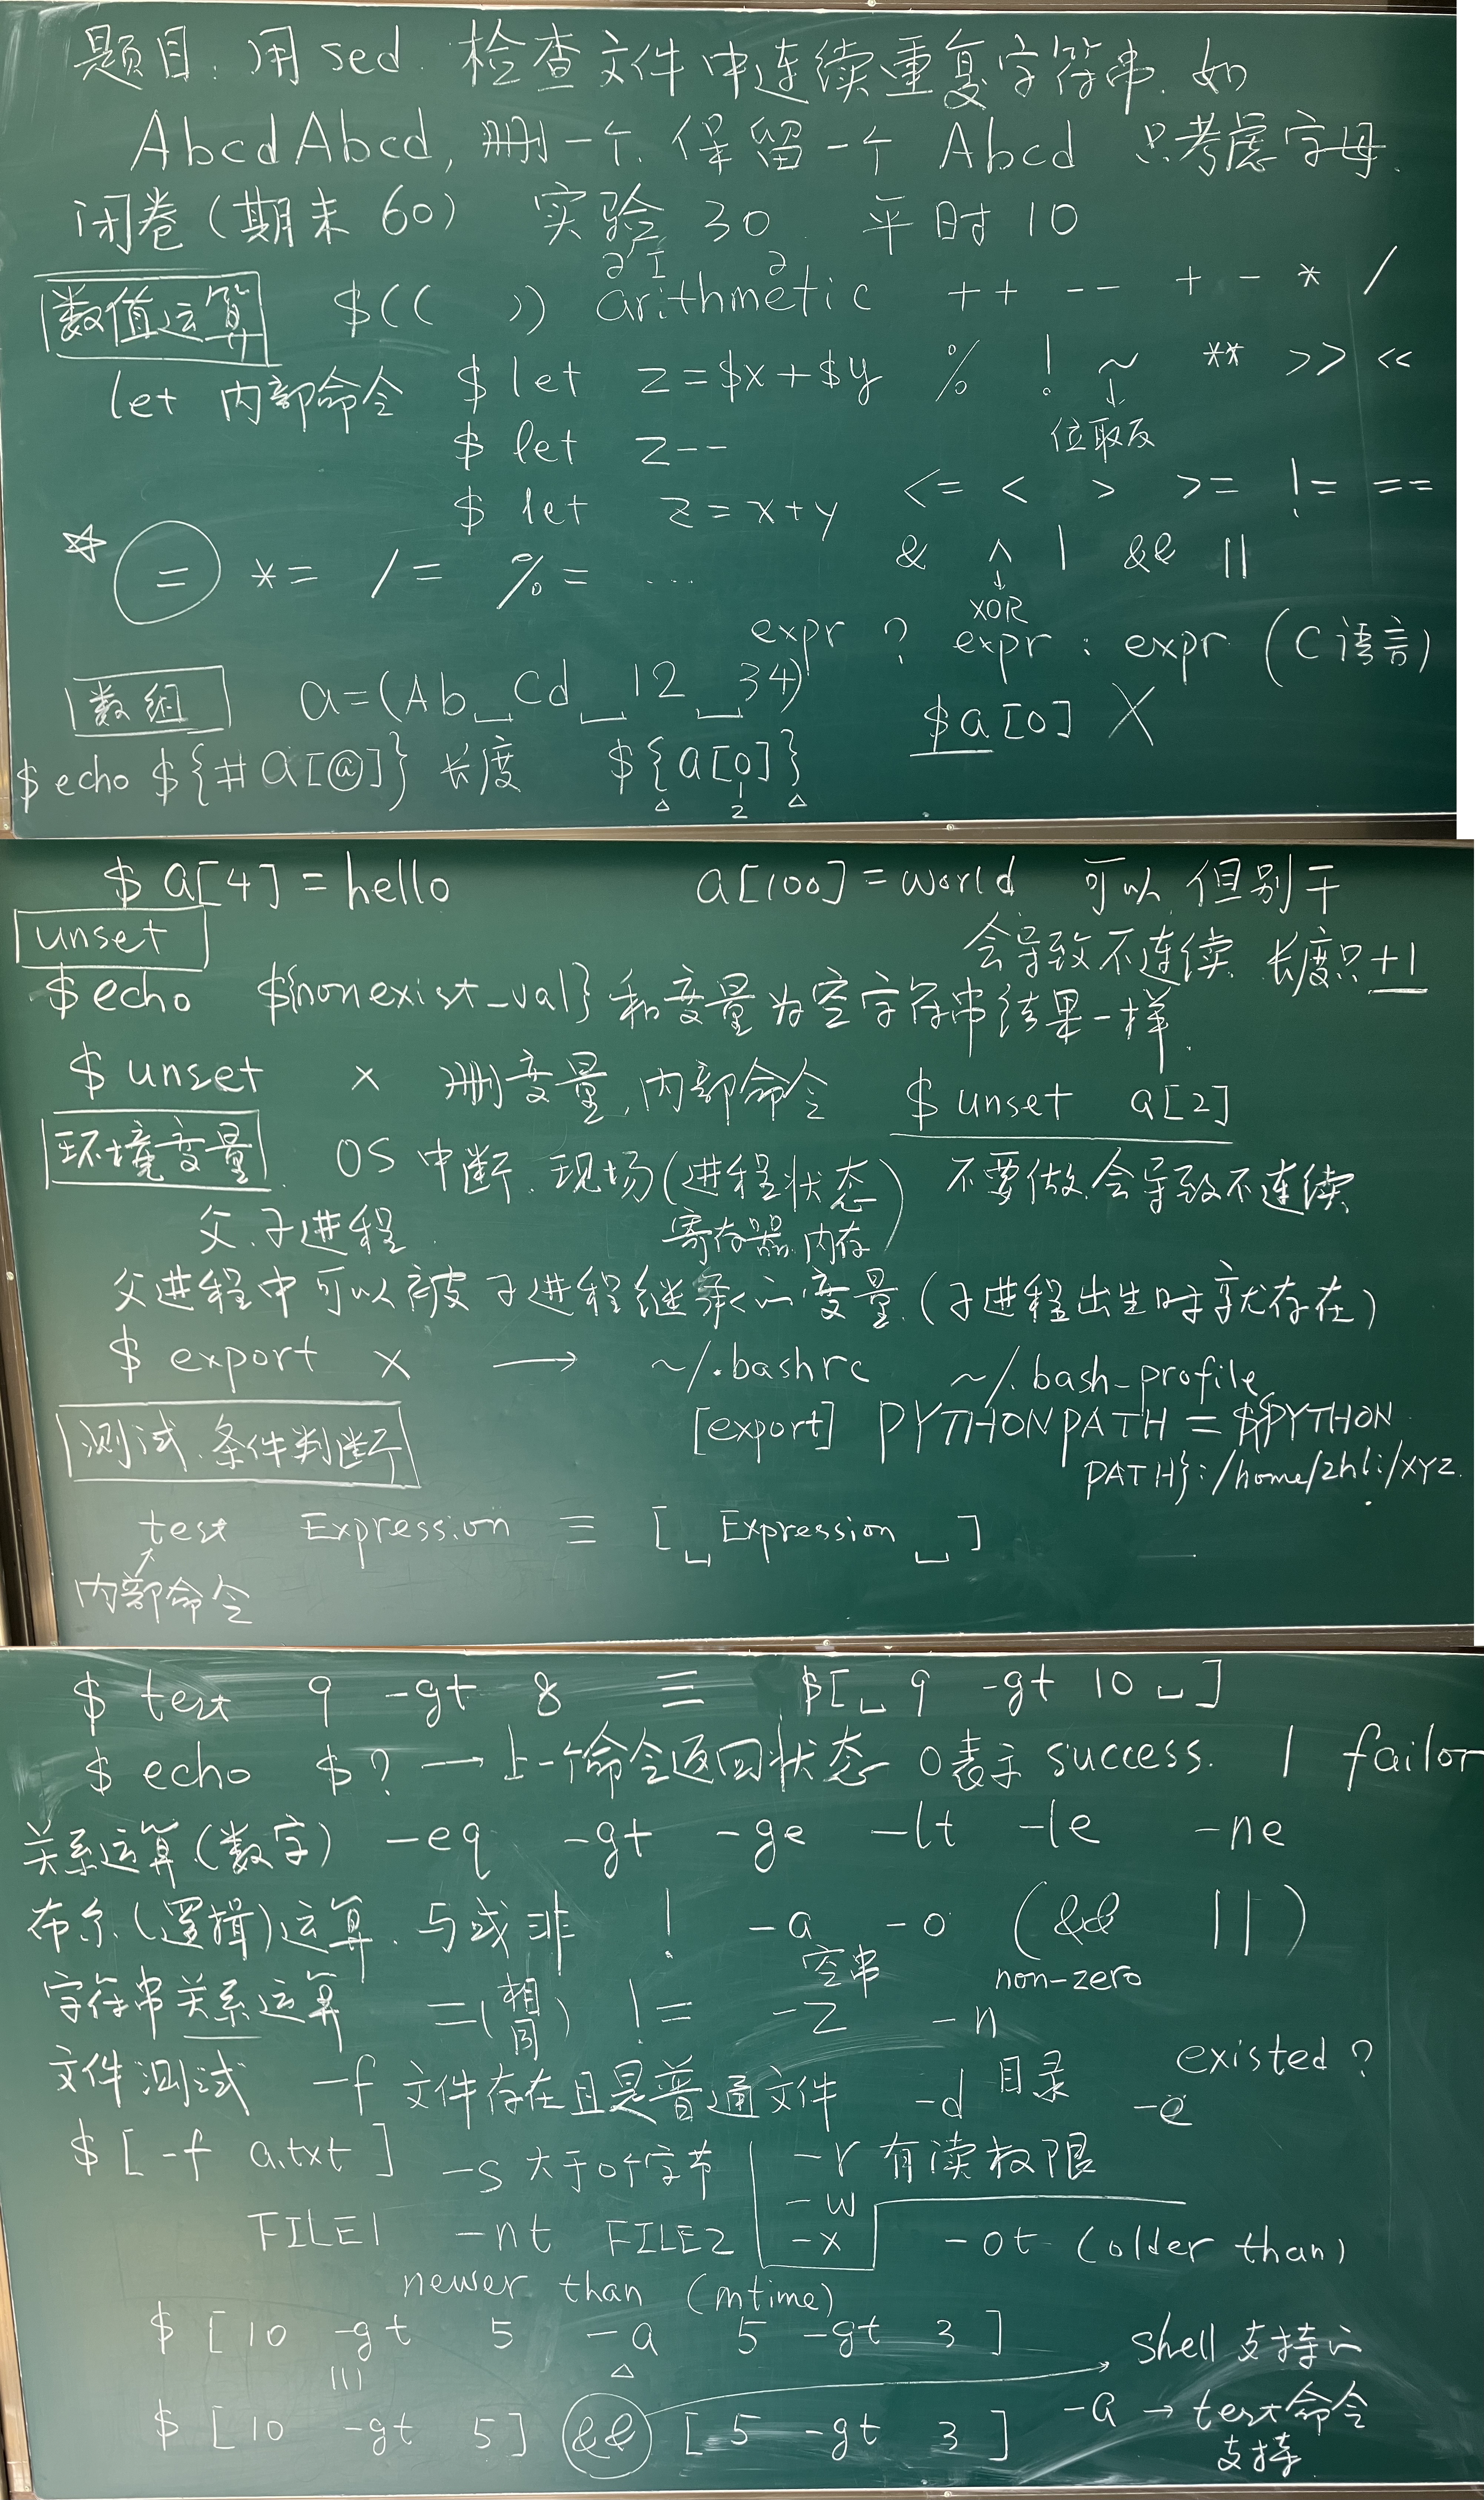 题目: 用 sed. 检查文件中连续重复字符串. 如
AbcdAbcd, 删一个. 保留一个 Abcd 只考虑字母.
闭卷(期末 60) 实验 30 平时 10
数值运算 $(( )) arithmetic ++ -- + - * /
let 内部命令 $ let z=$x+$y % ! ~ ** >> <<
↓
位取反
$ let z--
$ let z=x+y <= < > >= != ==
☆ = *= /= %= ... & ^ | && ||
↓
XOR
expr ? expr : expr (C语言)
数组 a=(Ab␣Cd␣12␣34) $a[0] X
$ echo ${#a[@]} 长度 ${a[0]}
1
2
$ a[4]=hello a[100]=world 可以 但别干
会导致不连续 长度只+1
unset
$ echo ${nonexist_val} 和变量为空字符串结果一样.
$ unset x 删变量, 内部命令 $ unset a[2]
不要做. 会导致不连续
环境变量. OS 中断. 现场(进程状态)
寄存器. 内存
父.子进程.
父进程中可以被子进程继承的变量. (子进程出生时就存在)
$ export x → ~/.bashrc ~/.bash_profile
[export] PYTHONPATH = ${PYTHON
PATH}:/home/zhli/xyz.
测试.条件判断
test Expression ≡ [␣Expression␣]
内部命令
$ test 9 -gt 8 ≡ $[␣9 -gt 10␣]
$ echo $? → 上一个命令返回状态 0表示 success. 1 failor
关系运算(数字) -eq -gt -ge -lt -le -ne
布尔(逻辑)运算. 与或非 ! -a -o (&& ||)
字符串关系运算 =(相同) != -z 空串 -n non-zero
文件测试 -f 文件存在且是普通文件 -d 目录 -e existed?
$ [ -f a.txt ] -s 大于0个字节 -r 有读权限
-w
-x
FILE1 -nt FILE2 -ot (older than)
newer than (mtime)
$ [ 10 -gt 5 -a 5 -gt 3 ]
shell 支持的
$ [ 10 -gt 5 ] && [ 5 -gt 3 ] -a → test命令
支持